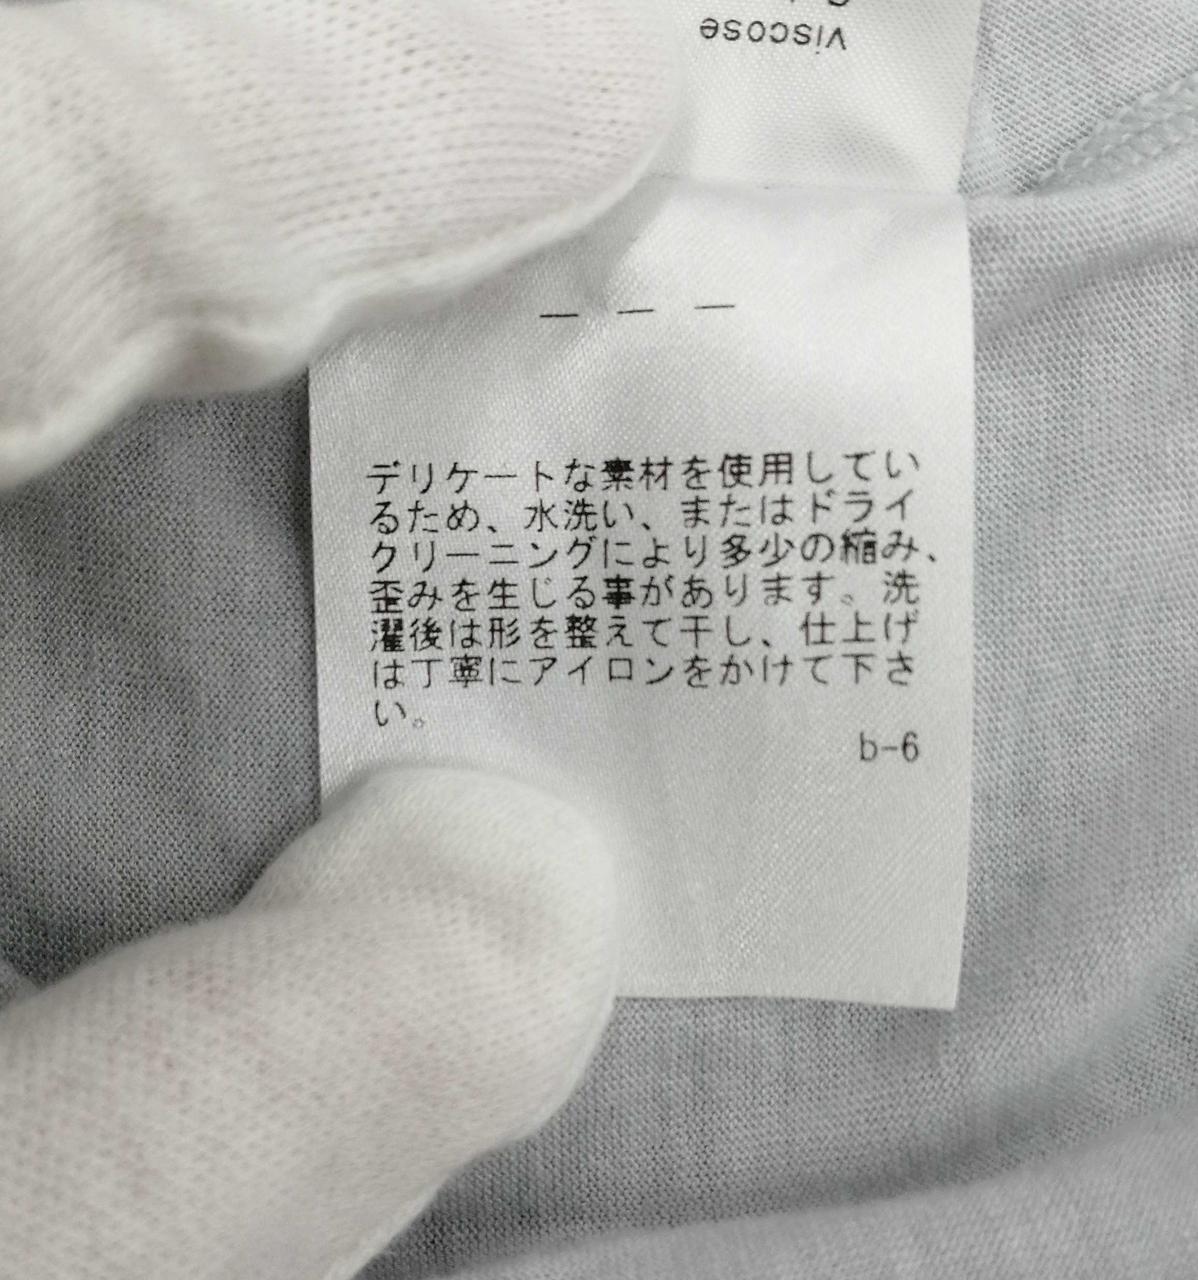 viscose
— — —
デリケートな素材を使用してい
るため、水洗い、またはドライ
クリーニングにより多少の縮み、
歪みを生じる事があります。洗
濯後は形を整えて干し、仕上げ
は丁寧にアイロンをかけて下さ
い。
b-6